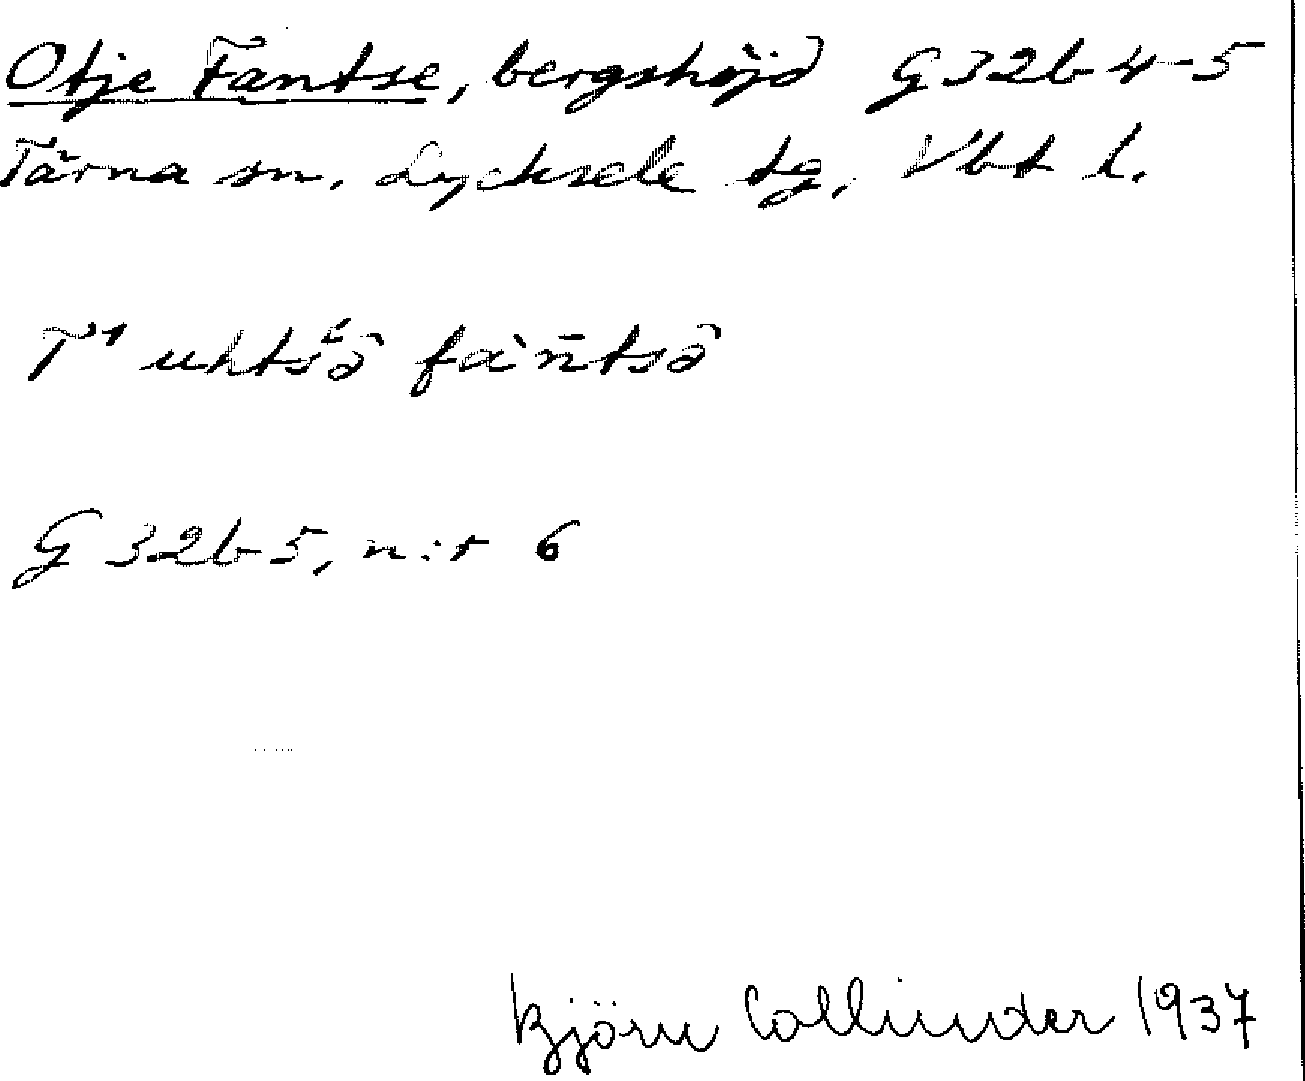 Otje Fantse, bergshöjd G32b4-5
Tärna sn. Lycksele tg, Vbt l.
G 32b5, n:r 6
Björn Collinder 1937